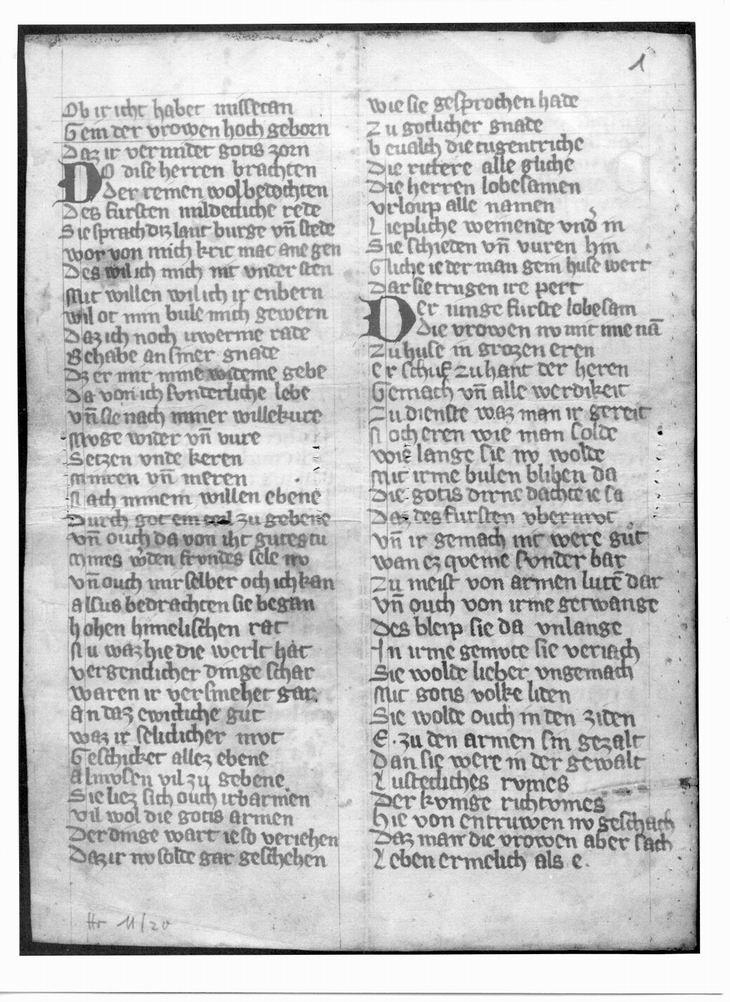 1
Ob ir icht habet missetan
Gein der vrowen hoch geborn
Daz ir vermidet gotis zorn
Do dise herren brachten
Der reinen wol bedochten
Des fursten mildecliche rede
Sie sprach diz lant burge vn̄ stede
wor von mich krit mac ane gen
Des wil ich mich nit vnder sten
Mit willen wil ich ir enbern
wil ot min bule mich gewern
Daz ich noch irwerme rate
Behabe an siner gnade
Dz er mir mine wideme gebe
Da von ich sunderliche lebe
vn̄ sie nach miner willekure
Moge wider vn̄ vure
Setzen vnde keren
Minren vn̄ meren
Nach minem willen ebene
Durch got ein teil zu gebene
vn̄ ouch da von iht gutes tu
Mines werden frundes sele nv
vn̄ ouch mir selber och ich kan
alsus bedrachten sie began
hohen himelischen rat
Nu waz hie die werlt hat
vergenclicher dinge schar
waren ir versmehet gar.
an daz ewicliche gut
waz ir seliclicher mvt
Geschicket allez ebene
almvsen vil zu gebene.
Sie liez sich ouch irbarmen
vil wol die gotis armen
Der dinge wart ie so veriehen
Daz ir nv solde gar geschehen
wie sie gesprochen hade
Zu gotlicher gnade
bevalch die tugentriche
Die rittere alle gliche
Die herren lobesamen
vrloup alle namen
Liepliche weinende vnd in
Sie schieden vn̄ vuren hin
Gliche ieder man gein huse wert
Dar sie trugen ire pert
Der iunge furste lobesam
die vrowen nv mit ime nā
Zu huse in grozen eren
er schuf zu hant der heren
Gemach vn̄ alle werdikeit
Zu dienste waz man ir gereit
Noch eren wie man solde
wie lange sie nv wolde
Mit irme bulen bliben da
Die gotis dirne dachte ie sa
Daz des fursten vbermvt
vn̄ ir gemach nit were gut
wan ez queme sunder bar
Zu meist von armen lutē dar
vn̄ ouch von irme getwange
Des bleip sie da vnlange
In irme gemvte sie veriach
Sie wolde lieber vngemach
Mit gotis volke liden
Sie wolde ouch in den ziden
E. zu den armen sin gezalt
Dan sie were in der gewalt
Lustecliches rvmes
Der kvnige richtvmes
Hie von entruwen nv geschach
Daz man die vrowen aber sach
Leben ermelich als e.
Hr 11/20